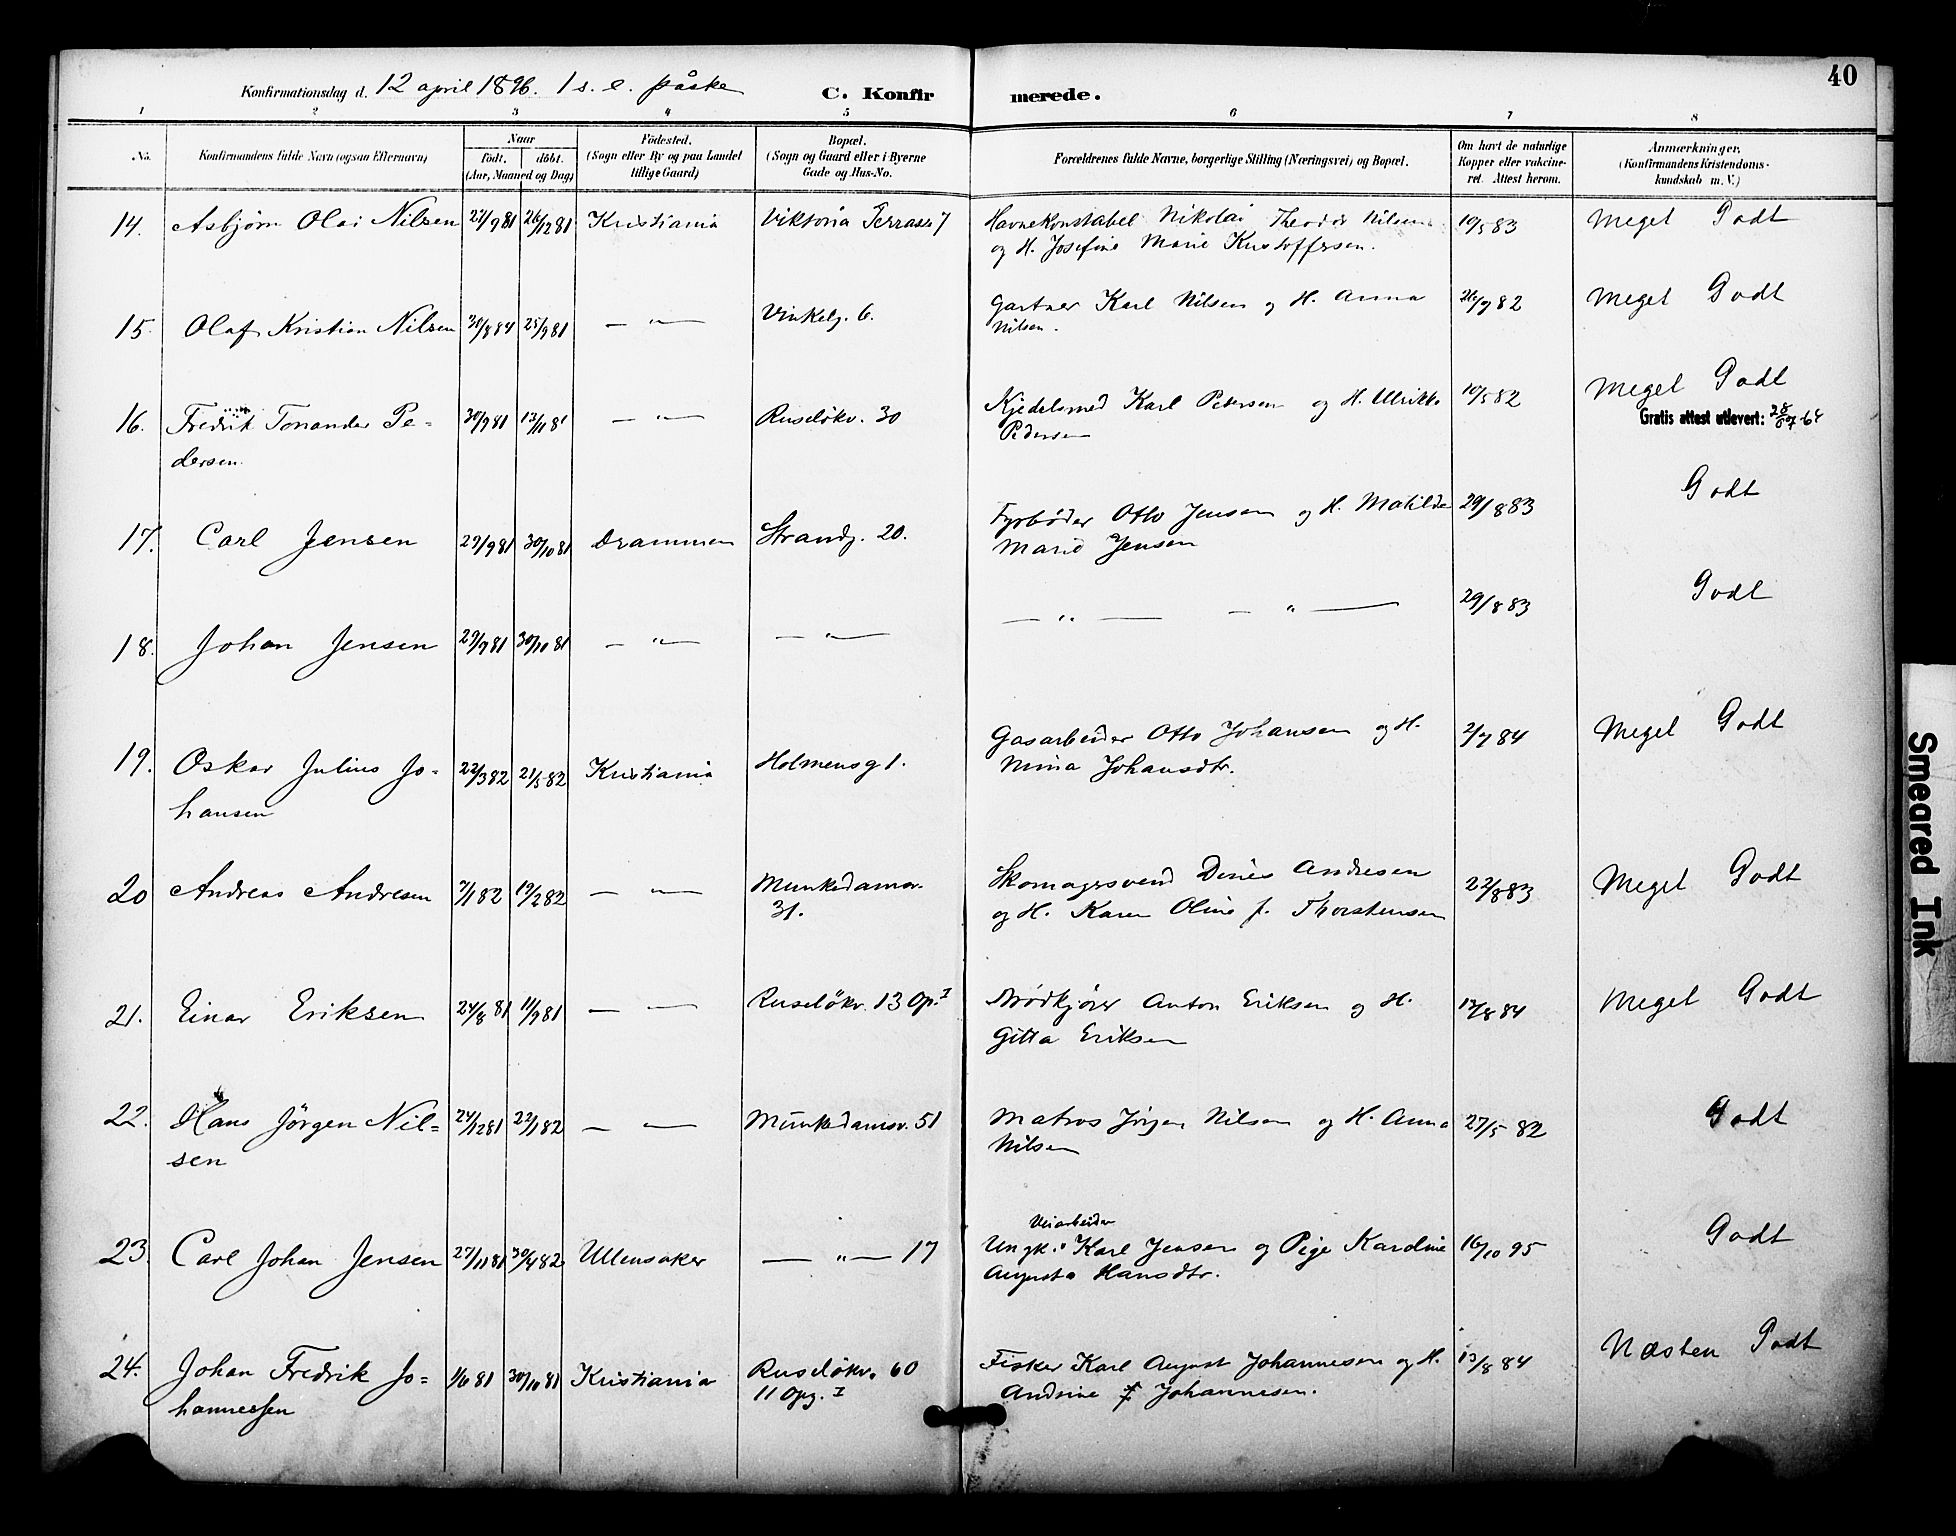 40
Konfirmationsdag d. 12 april 1896. 1 s. e. påske C. Konfirmerede.
1 2 3 4 5 6 7 8
No. Konfirmandens fulde Navn (ogsaa Efternavn) Naar født. døbt. (Aar, Maaned og Dag) Fødested. (Sogn eller By og paa Landet tillige Gaard) Bopæl. (Sogn og Gaard eller i Byerne Gade og Hus-No. Forældrenes fulde Navne, borgerlige Stilling (Næringsvei) og Bopæl. Om havt de naturlige Kopper eller vakcineret. Attest herom. Anmærkninger. (Konfirmandens Kristendomskundskab m. V.)
14. Asbjörn Olai Nilsen 27/9 81 26/12 81 Kristiania Viktoria Terrasse 7 Havnekonstabel Nikolai Theodor Nilsen 10/5 83 Meget Godt
og H. Josefine Marie Kristoffersen.
15. Olaf Kristian Nilsen 30/8 84 25/9 81 — " — Vinkelg. 6. Gartner Karl Nilsen og H. Anna 26/7 82 Meget Godt
Nilsen.
16. Fredrik Tonander Pe- 30/9 81 13/11 81 — " — Ruseløkv. 30 Kjedelsmed Karl Petersen og H. Ulrikke 10/5 82 Meget Godt
dersen. Pedersen Gratis attest utlevert: 28/07-64
17. Carl Jensen 29/9 81 30/10 81 Drammen Strandg. 20. Fyrbøder Otto Jensen og H. Matilde 29/8 83 Godt
Marie Jensen
18. Johan Jensen 29/9 81 30/10 81 — " — — " — — " — — " — 29/8 83 Godt
19. Oskar Julius Jo- 22/3 82 21/5 82 Kristiania Holmensg 1. Gasarbeider Otto Johansen og H. 2/7 84 Meget Godt
hansen Mina Johansdtr.
20 Andreas Andresen 7/1 82 19/2 82 — " — Munkedamsv. Skomagersvend Dines Andresen 22/8 83 Meget Godt
31. og H. Karen Oline f. Thorstensen
21. Einar Eriksen 24/8 81 11/9 81 — " — Ruseløkv. 13 Op. I Brødkjører Anton Eriksen og H. 13/8 84 Meget Godt
Gitta Eriksen
22. Hans Jörgen Nil- 24/12 81 22/1 82 — " — Munkedamsv. 51 Matros Jörgen Nilsen og H. Anna 27/5 82 Godt
sen Nilsen
Veiarbeider
23. Carl Johan Jensen 27/11 81 30/4 82 Ullensaker — " — 17 Ungk. Karl Jensen og Pige Karoline 16/10 95 Godt
Augusta Hansdtr.
24. Johan Fredrik Jo- 1/6 81 30/10 81 Kristiania Ruseløkv. 60 Fisker Karl August Johannesen og H. 13/8 84 Næsten Godt
hannessen 11 Opg. I Andrine f. Johannesen.
Smeared Ink